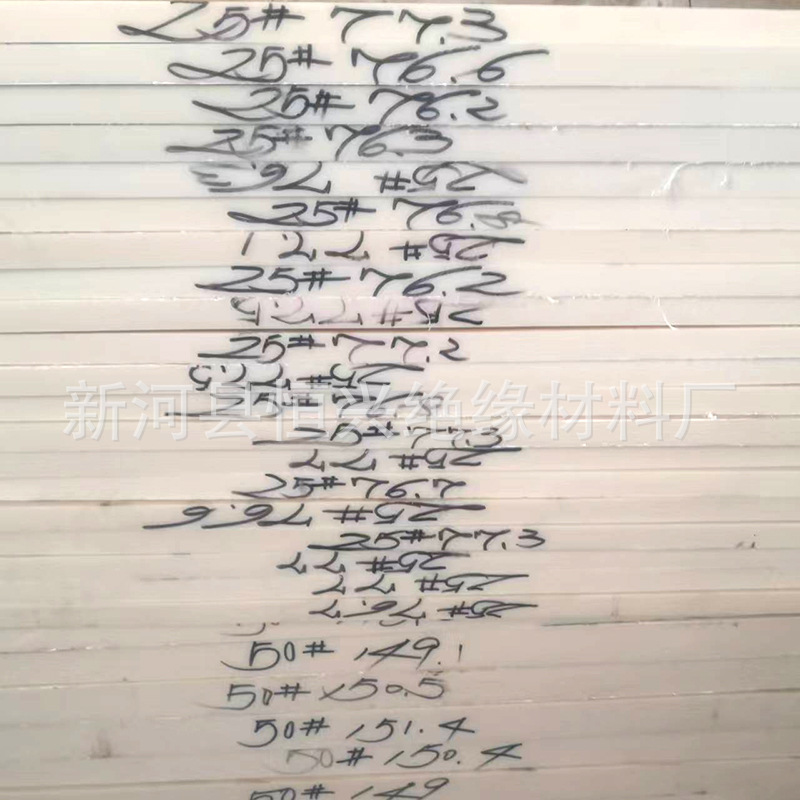 25# 77.3
25# 76.6
25# 76.2
25# 76.3
25# 76.
25# 76.
25# 77.1
25# 76.2
25# 77.5
25# 77.2
25# 77.5
新河县恒兴绝缘材料厂
25# 76.
25# 77.3
25# 77
25# 76.7
25# 76.6
25# 77.3
25# 77
25# 77
25# 76.7
50# 149.1
50# 150.5
50# 151.4
50# 150.4
50# 149